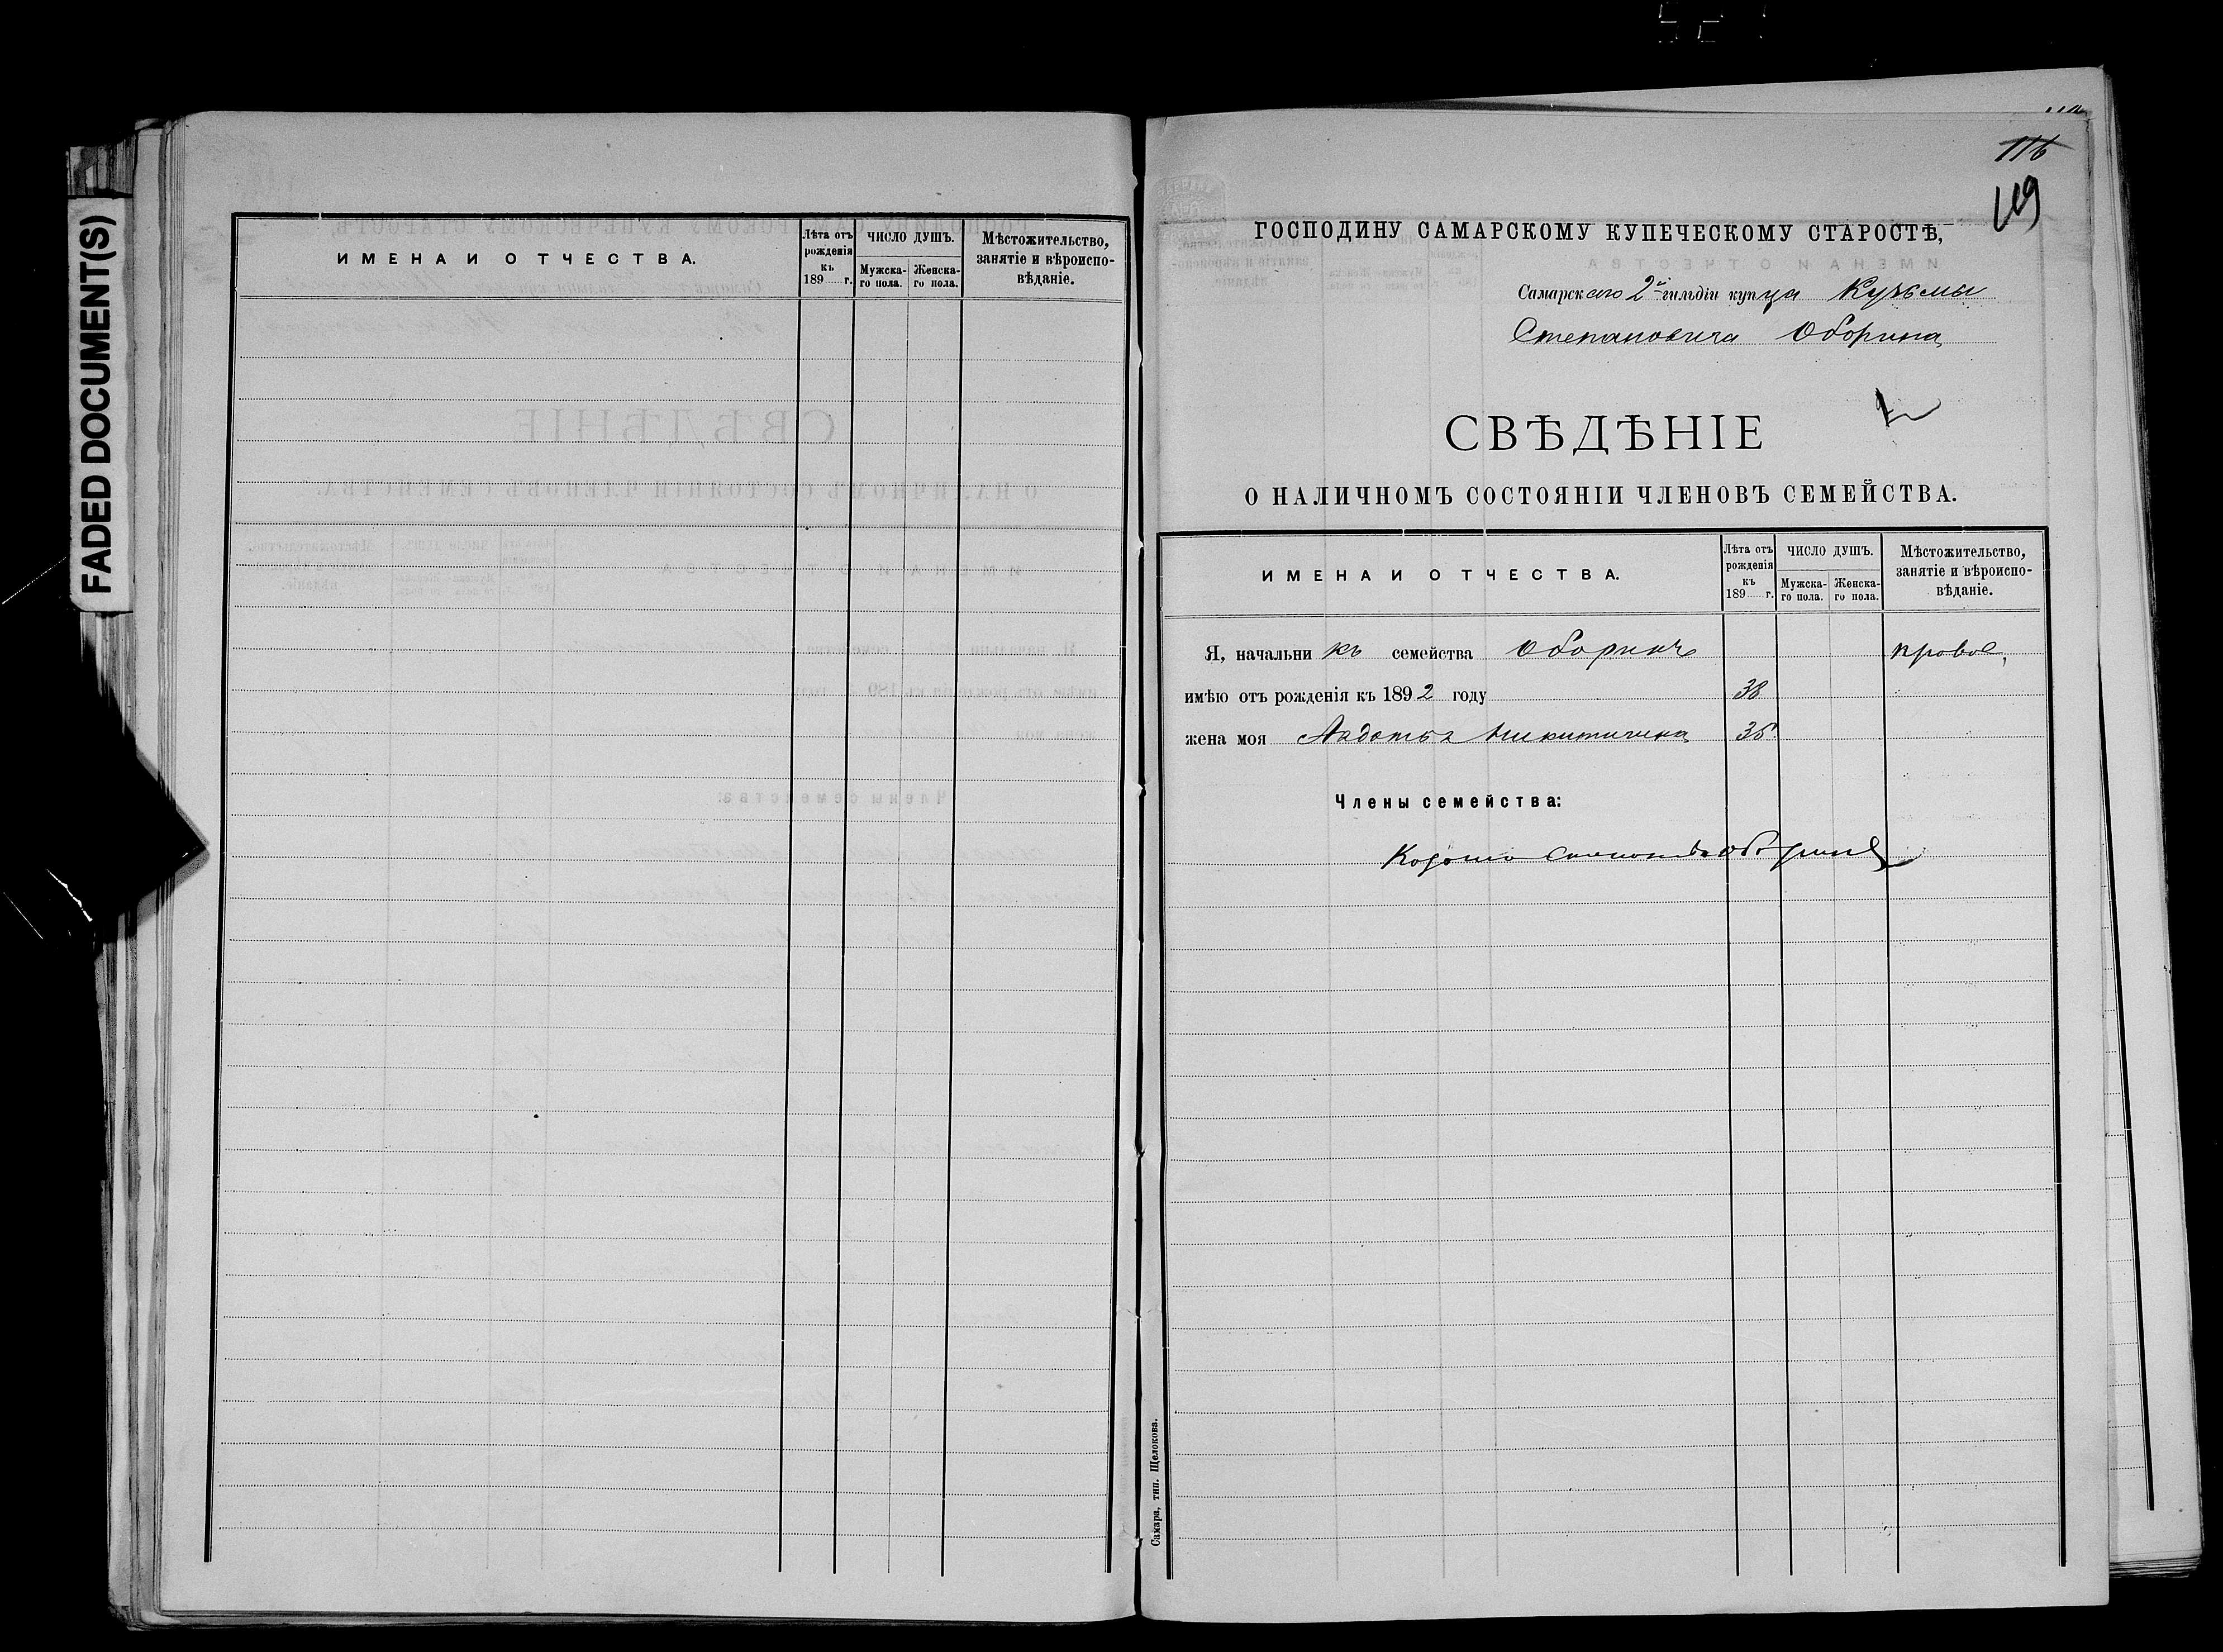 FADED DOCUMENT(S)
ИМЕНА И ОТЧЕСТВА.
Лѣта отъ рожденія къ 189 г.
ЧИСЛО ДУШЪ.
Мужска-го пола.
Женска-го пола.
Мѣстожительство, занятіе и вѣроиспо-вѣданіе.
116
119
ГОСПОДИНУ САМАРСКОМУ КУПЕЧЕСКОМУ СТАРОСТѢ,
Самарскаго 2й гильдіи купца Кузьмы
Степановича Оборина
СВѢДѢНІЕ
О НАЛИЧНОМЪ СОСТОЯНІИ ЧЛЕНОВЪ СЕМЕЙСТВА.
ИМЕНА И ОТЧЕСТВА.
Лѣта отъ рожденія къ 189 г.
ЧИСЛО ДУШЪ.
Мужска-го пола.
Женска-го пола.
Мѣстожительство, занятіе и вѣроиспо-вѣданіе.
Я, начальникъ семейства Оборинъ правос,
имѣю отъ рожденія къ 1892 году 38
жена моя Авдотья Никитична 35
Члены семейства:
Самара, тип. Щелокова.